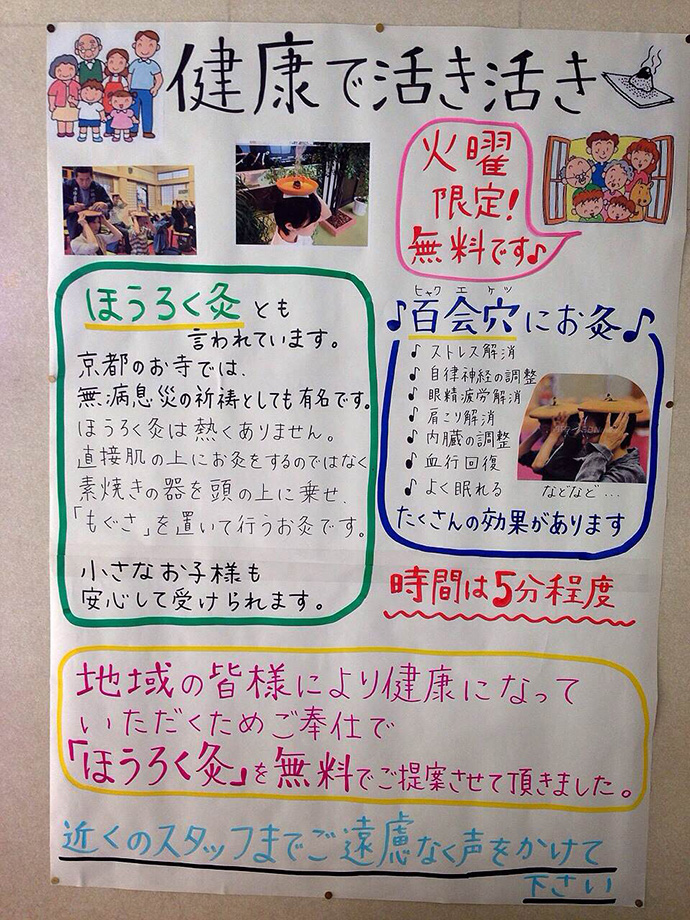 健康で活き活き
火曜
限定!
無料です♪
ほうろく灸とも
言われています。
京都のお寺では、
無病息災の祈祷としても有名です。
ほうろく灸は熱くありません。
直接肌の上にお灸をするのではなく
素焼きの器を頭の上に乗せ、
「もぐさ」を置いて行うお灸です。
小さなお子様も
安心して受けられます。
ヒャク エ ケツ
♪百会穴にお灸♪
♪ ストレス解消
♪ 自律神経の調整
♪ 眼精疲労解消
♪ 肩こり解消
♪ 内臓の調整
♪ 血行回復
♪ よく眠れる
などなど…
たくさんの効果があります
時間は5分程度
地域の皆様により健康になって
いただくためご奉仕で
「ほうろく灸」を無料でご提案させて頂きました。
近くのスタッフまでご遠慮なく声をかけて
下さい